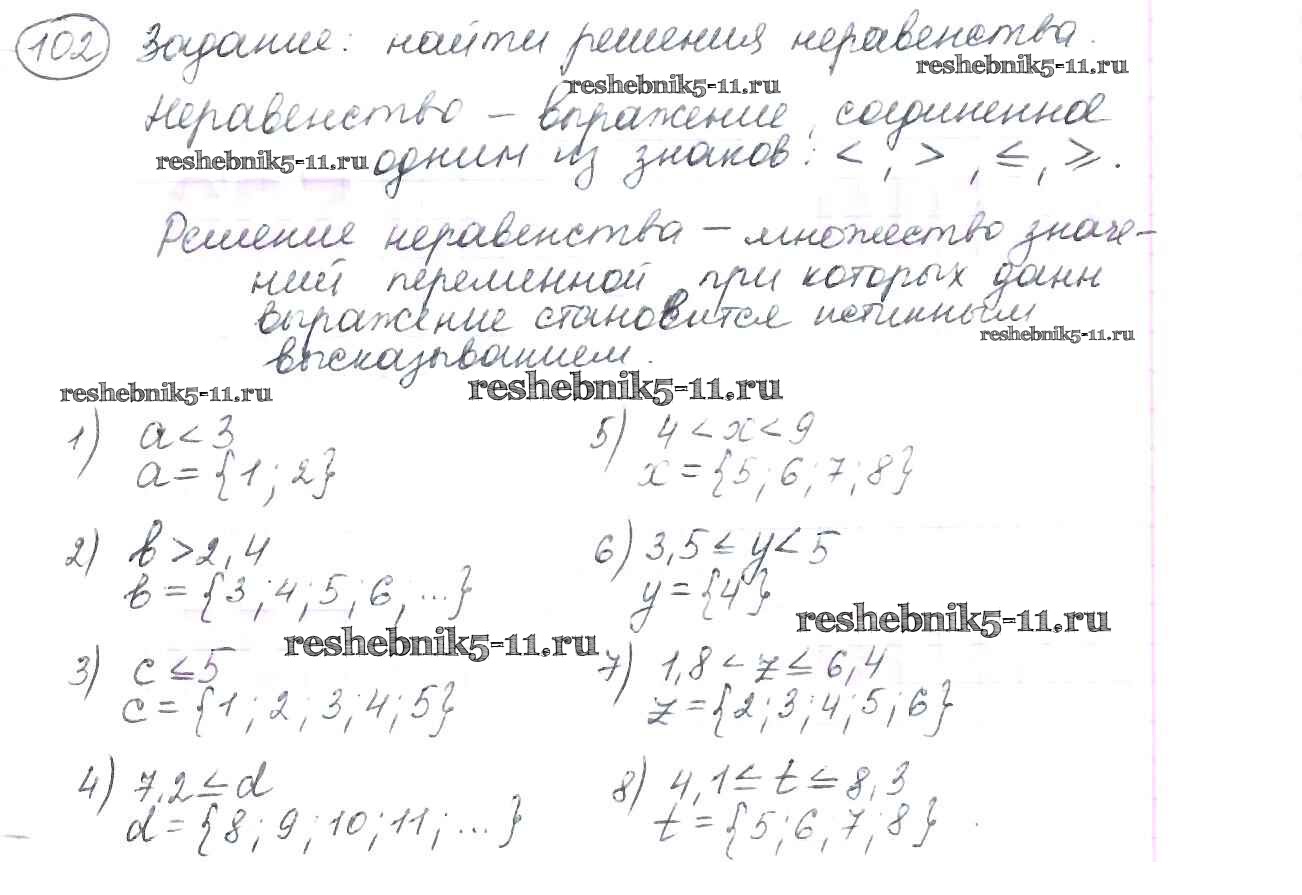 102 Задание: найти решения неравенства.
reshebnik5-11.ru
reshebnik5-11.ru
Неравенство – выражение, соединенное
reshebnik5-11.ru
одним из знаков: <, >, ≤, ≥.
Решение неравенства – множество значе-
ний переменной, при которых данн
выражение становится истинным
reshebnik5-11.ru
высказыванием.
reshebnik5-11.ru
reshebnik5-11.ru
1) a < 3
a = {1; 2}
2) b > 2,4
b = {3; 4; 5; 6; ...}
reshebnik5-11.ru
3) c ≤ 5
c = {1; 2; 3; 4; 5}
4) 7,2 ≤ d
d = {8; 9; 10; 11; ...}
5) 4 < x < 9
x = {5; 6; 7; 8}
6) 3,5 ≤ y < 5
y = {4}
reshebnik5-11.ru
7) 1,8 < z ≤ 6,4
z = {2; 3; 4; 5; 6}
8) 4,1 ≤ t ≤ 8,3
t = {5; 6; 7; 8}